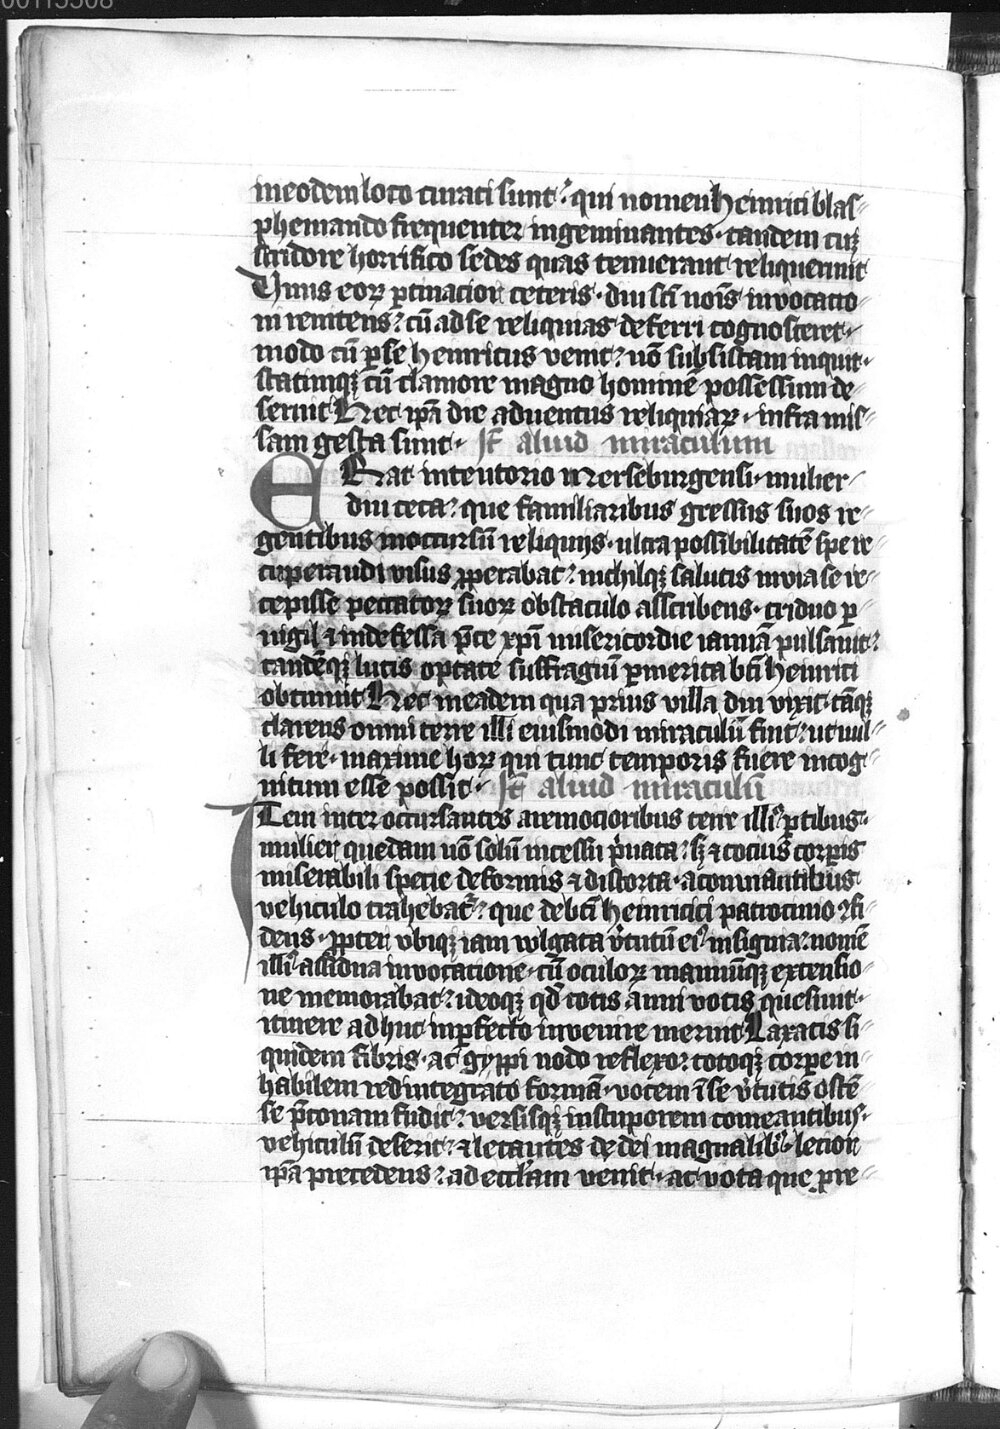 00115508
in eodem loco curati sunt. qui nomen Heinrici blas-
phemando frequenter ingeminantes. tandem cuȝ
stridore horrifico sedes quas tenuerant reliquerunt
Unus eoꝝ ꝑtinacior ceteris. diu sc̄i nōis inuocatio-
ni renitens. cū ad se reliquias deferri cognosceret.
modo cū ꝑ se heinricus venit. nō subsistam inquit.
statimqȝ cū clamore magno hominē possessum de-
seruit Hec ip̄a die aduentus reliquiaꝝ. infra mis-
sam gesta sunt. It̄ aliud miraculum
ERat in tentorio merseburgensi. mulier
diu ceca. que familiaribus gressus suos re-
gentibus in occursū reliquijs. ultra possibilitatē spe re-
cuperandi visus ꝓperabat. nichilqȝ salutis in via se re-
cepisse peccatoꝝ suoꝝ obstaculo asscribens. triduo ꝑ-
uigil ⁊ indefessa p̄ce xp̄i misericordie ianuā pulsauit.
tandēqȝ lucis optate suffragiū ꝑ merita bt̄i heinrici
obtinuit Hec in eadem qua prius villa diu vixit. tāqȝ
clarens omni terre illi eiusmodi miraculū fuit. ut nul-
li fere. maxime hoꝝ qui tunc temporis fuere incog-
nitum esse possit. It̄ aliud miraculū
ITem inter occursantes a remocioribus terre illiꝰ ꝑtibus.
mulier quedam nō solū incessu p̄uata. sȝ ⁊ tociꝰ corꝑis
miserabili specie deformis ⁊ distorta. a comiantibus
vehiculo trahebat᷑. que de bt̄i heinricici patrocinio ꝯfi-
dens. ꝓpter vbiqȝ iam wlgata v̄tutū eiꝰ insignia. nomē
illiꝰ assidua inuocatione. cū oculoꝝ manuūqȝ extensio-
ne memorabat. ideoqȝ qd̄ totis animi votis quesiuit.
itinere adhuc inꝑfecto inuenire meruit Laxatis si-
quidem fibris. ac gyppi nodo reflexo. totoqȝ corꝑe in
habilem redintegrato formā. vocem ī se v̄tutis ostē-
se p̄conam fudit. versisqȝ in stuporem comeantibus.
vehiculū deserit. ⁊ letantes de dei magnalibꝰ. letior
ip̄a precedens. ad eccl̄am venit. ac vota que pre-